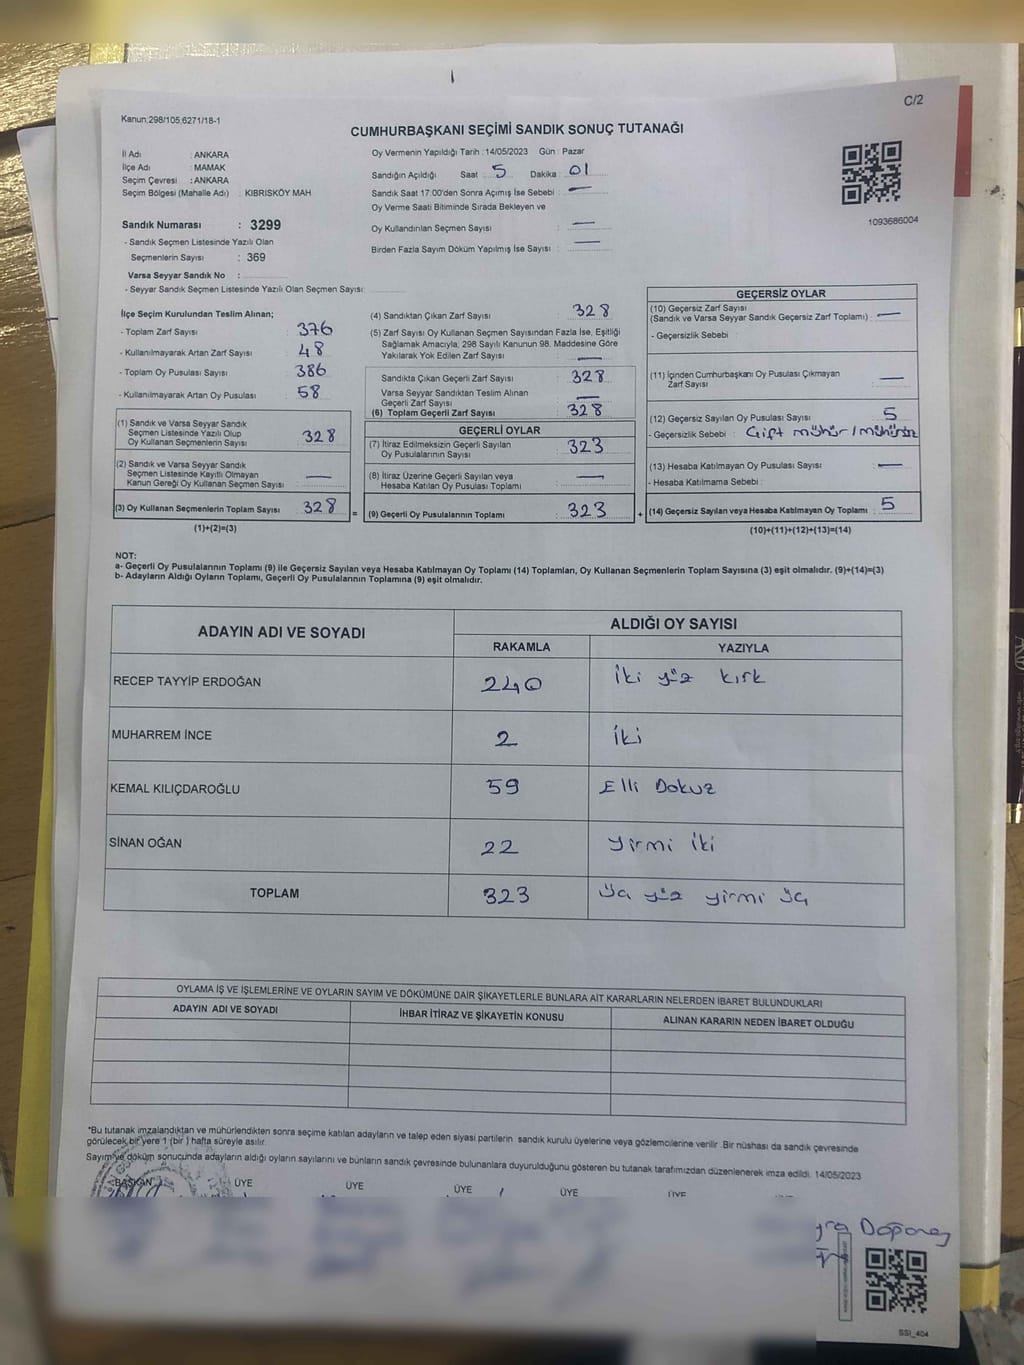 C/2
Kanun;298/105,6271/18-1
CUMHURBAŞKANI SEÇİMİ SANDIK SONUÇ TUTANAĞI
İl Adı : ANKARA
İlçe Adı : MAMAK
Seçim Çevresi : ANKARA
Seçim Bölgesi (Mahalle Adı) : KIBRISKÖY MAH
Sandık Numarası : 3299
- Sandık Seçmen Listesinde Yazılı Olan
Seçmenlerin Sayısı : 369
Varsa Seyyar Sandık No :
- Seyyar Sandık Seçmen Listesinde Yazılı Olan Seçmen Sayısı:
Oy Vermenin Yapıldığı Tarih : 14/05/2023 Gün : Pazar
Sandığın Açıldığı Saat 5 Dakika : 01
Sandık Saat 17:00'den Sonra Açımış İse Sebebi : —
Oy Verme Saati Bitiminde Sırada Bekleyen ve
Oy Kullandırılan Seçmen Sayısı : —
Birden Fazla Sayım Döküm Yapılmış İse Sayısı : —
1093686004
İlçe Seçim Kurulundan Teslim Alınan;
- Toplam Zarf Sayısı : 376
- Kullanılmayarak Artan Zarf Sayısı : 48
- Toplam Oy Pusulası Sayısı : 386
- Kullanılmayarak Artan Oy Pusulası : 58
(1) Sandık ve Varsa Seyyar Sandık
Seçmen Listesinde Yazılı Olup
Oy Kullanan Seçmenlerin Sayısı : 328
(2) Sandık ve Varsa Seyyar Sandık
Seçmen Listesinde Kayıtlı Olmayan
Kanun Gereği Oy Kullanan Seçmen Sayısı : —
(3) Oy Kullanan Seçmenlerin Toplam Sayısı : 328
(1)+(2)=(3)
(4) Sandıktan Çıkan Zarf Sayısı : 328
(5) Zarf Sayısı Oy Kullanan Seçmen Sayısından Fazla İse, Eşitliği
Sağlamak Amacıyla, 298 Sayılı Kanunun 98. Maddesine Göre
Yakılarak Yok Edilen Zarf Sayısı : —
Sandıkta Çıkan Geçerli Zarf Sayısı : 328
Varsa Seyyar Sandıktan Teslim Alınan
Geçerli Zarf Sayısı : —
(6) Toplam Geçerli Zarf Sayısı : 328
GEÇERLİ OYLAR
(7) İtiraz Edilmeksizin Geçerli Sayılan
Oy Pusulalarının Sayısı : 323
(8) İtiraz Üzerine Geçerli Sayılan veya
Hesaba Katılan Oy Pusulası Toplamı : —
= (9) Geçerli Oy Pusulalarının Toplamı : 323 +
GEÇERSİZ OYLAR
(10) Geçersiz Zarf Sayısı
(Sandık ve Varsa Seyyar Sandık Geçersiz Zarf Toplamı) : —
- Geçersizlik Sebebi :
(11) İçinden Cumhurbaşkanı Oy Pusulası Çıkmayan
Zarf Sayısı : —
(12) Geçersiz Sayılan Oy Pusulası Sayısı : 5
- Geçersizlik Sebebi : Çift mühür / mühürsüz
(13) Hesaba Katılmayan Oy Pusulası Sayısı : —
- Hesaba Katılmama Sebebi :
(14) Geçersiz Sayılan veya Hesaba Katılmayan Oy Toplamı : 5
(10)+(11)+(12)+(13)=(14)
NOT:
a- Geçerli Oy Pusulalarının Toplamı (9) ile Geçersiz Sayılan veya Hesaba Katılmayan Oy Toplamı (14) Toplamları, Oy Kullanan Seçmenlerin Toplam Sayısına (3) eşit olmalıdır. (9)+(14)=(3)
b- Adayların Aldığı Oyların Toplamı, Geçerli Oy Pusulalarının Toplamına (9) eşit olmalıdır.
ADAYIN ADI VE SOYADI ALDIĞI OY SAYISI
RAKAMLA YAZIYLA
RECEP TAYYİP ERDOĞAN 240 İki yüz kırk
MUHARREM İNCE 2 İki
KEMAL KILIÇDAROĞLU 59 Elli Dokuz
SİNAN OĞAN 22 Yirmi iki
TOPLAM 323 Üç yüz yirmi üç
OYLAMA İŞ VE İŞLEMLERİNE VE OYLARIN SAYIM VE DÖKÜMÜNE DAİR ŞİKAYETLERLE BUNLARA AİT KARARLARIN NELERDEN İBARET BULUNDUKLARI
ADAYIN ADI VE SOYADI İHBAR İTİRAZ VE ŞİKAYETİN KONUSU ALINAN KARARIN NEDEN İBARET OLDUĞU
*Bu tutanak imzalandıktan ve mühürlendikten sonra seçime katılan adayların ve talep eden siyasi partilerin sandık kurulu üyelerine veya gözlemcilerine verilir .Bir nüshası da sandık çevresinde
görülecek bir yere 1 (bir ) hafta süreyle asılır.
Sayım ve döküm sonucunda adayların aldığı oyların sayılarını ve bunların sandık çevresinde bulunanlara duyurulduğunu gösteren bu tutanak tarafımızdan düzenlenerek imza edildi. 14/05/2023
BAŞKAN ÜYE ÜYE ÜYE ÜYE ÜYE
SSI_404